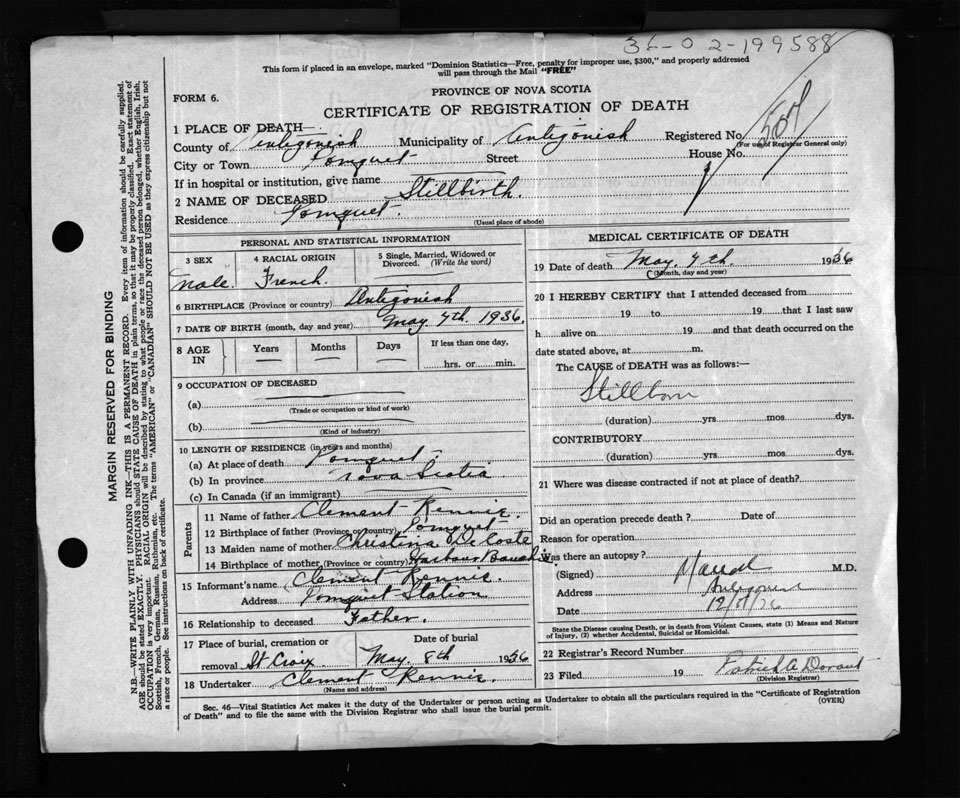 36-02-199588
This form if placed in an envelope, marked "Dominion Statistics—Free, penalty for improper use, $300," and properly addressed
will pass through the Mail "FREE"
PROVINCE OF NOVA SCOTIA
FORM 6.
CERTIFICATE OF REGISTRATION OF DEATH
1 PLACE OF DEATH—
County of Antigonish Municipality of Antigonish Registered No. 507
(For use of Registrar General only)
City or Town Pomquet Street House No.
If in hospital or institution, give name
2 NAME OF DECEASED Stillbirth.
Residence Pomquet.
(Usual place of abode)
PERSONAL AND STATISTICAL INFORMATION
3 SEX
Male.
4 RACIAL ORIGIN
French.
5 Single, Married, Widowed or
Divorced. (Write the word)
6 BIRTHPLACE (Province or country) Antigonish
7 DATE OF BIRTH (month, day and year) May 4th. 1936.
8 AGE IN
Years Months Days
If less than one day,
hrs. or min.
9 OCCUPATION OF DECEASED
(a)
(Trade or occupation or kind of work)
(b)
(Kind of industry)
10 LENGTH OF RESIDENCE (in years and months)
(a) At place of death Pomquet.
(b) In province Nova Scotia
(c) In Canada (if an immigrant)
Parents
11 Name of father Clement Rennie.
12 Birthplace of father (Province or country) Pomquet
13 Maiden name of mother Christina DeCoste
14 Birthplace of mother (Province or country) Harbour Bouche.
15 Informant's name Clement Rennie.
Address Pomquet Station
16 Relationship to deceased Father.
17 Place of burial, cremation or
removal St Croix
Date of burial
May 8th 1936
18 Undertaker Clement Rennie.
(Name and address)
MEDICAL CERTIFICATE OF DEATH
19 Date of death May 4th. 1936
(Month, day and year)
20 I HEREBY CERTIFY that I attended deceased from
19 to 19 that I last saw
h alive on 19 and that death occurred on the
date stated above, at m.
The CAUSE of DEATH was as follows:—
Stillborn
(duration) yrs mos dys.
CONTRIBUTORY
(duration) yrs mos dys.
21 Where was disease contracted if not at place of death?
Did an operation precede death ? Date of
Reason for operation
Was there an autopsy?
(Signed) M.D.
Address Antigonish
Date
State the Disease causing Death, or in death from Violent Causes, state (1) Means and Nature
of Injury, (2) whether Accidental, Suicidal or Homicidal.
22 Registrar's Record Number
23 Filed 19 Patrick A Dorant
(Division Registrar)
Sec. 46—Vital Statistics Act makes it the duty of the Undertaker or person acting as Undertaker to obtain all the particulars required in the "Certificate of Registration
of Death" and to file the same with the Division Registrar who shall issue the burial permit.
(OVER)
MARGIN RESERVED FOR BINDING
N.B—WRITE PLAINLY WITH UNFADING INK—THIS IS A PERMANENT RECORD. Every item of information should be carefully supplied.
AGE should be stated EXACTLY. PHYSICIANS should STATE CAUSE OF DEATH in plain terms, so that it may be properly classified. Exact statement of
OCCUPATION is very important. RACIAL ORIGIN will be described by stating to what people or race the deceased person belonged, whether English, Irish,
Scottish, French, German, Russian, Ruthenian, etc. The terms "AMERICAN" or "CANADIAN" SHOULD NOT BE USED as they express citizenship but not
a race or people. See instructions on back of certificate.